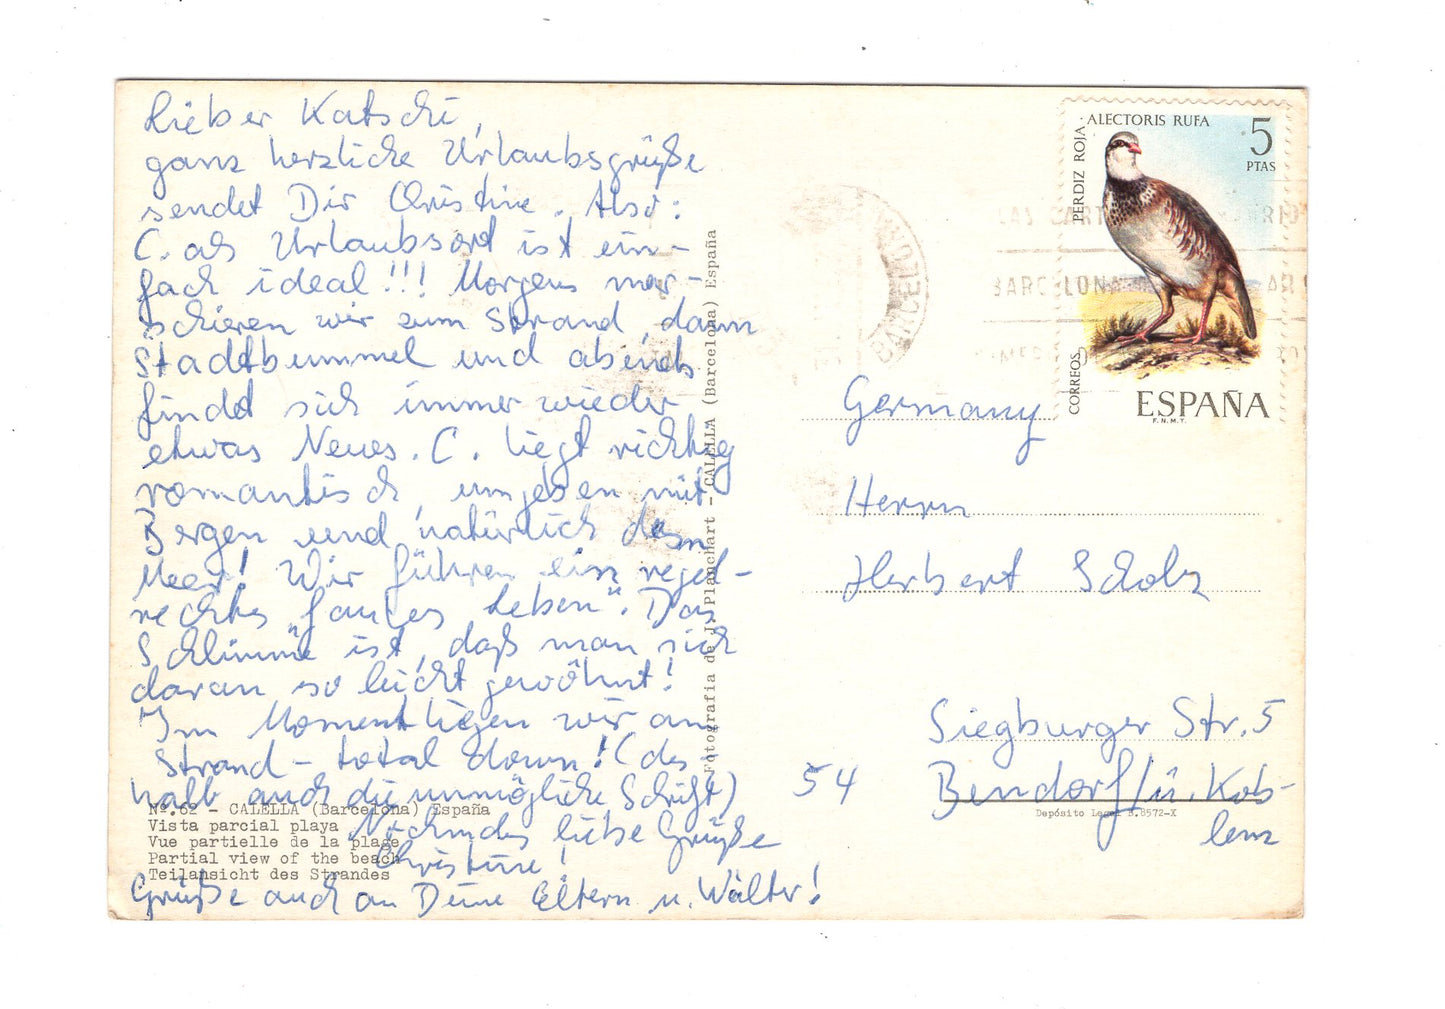 Lieber Katschi,
ganz herzliche Urlaubsgrüße
sendet Dir Christine. Also:
C. als Urlaubsort ist ein-
fach ideal!!! Morgens mar-
schieren wir zum Strand, dann
Stadtbummel und abends
findet sich immer wieder
etwas Neues. C. liegt richtig
romantisch, umgeben mit
Bergen und natürlich dem
Meer! Wir führen ein regel-
rechtes "faules Leben". Das
Schlimme ist, daß man sich
daran so leicht gewöhnt!
Im Moment liegen wir am
Strand - total down! (des-
halb auch die unmögliche Schrift)
Nochmals liebe Grüße
Christine!
Grüße auch an Deine Eltern u. Walter!
Nº. 62 - CALELLA (Barcelona) España
Vista parcial playa
Vue partielle de la plage
Partial view of the beach
Teilansicht des Strandes
Fotografía de J. Planchart - CALELLA (Barcelona) España
PERDIZ ROJA
ALECTORIS RUFA
5
PTAS
CORREOS
ESPAÑA
F.N.M.T.
BARCELONA
BARCELONA
Germany
Herrn
Herbert Scholz
Siegburger Str. 5
54 Bendorf/ü. Kob-
lenz
Depósito Legal B.8572-X